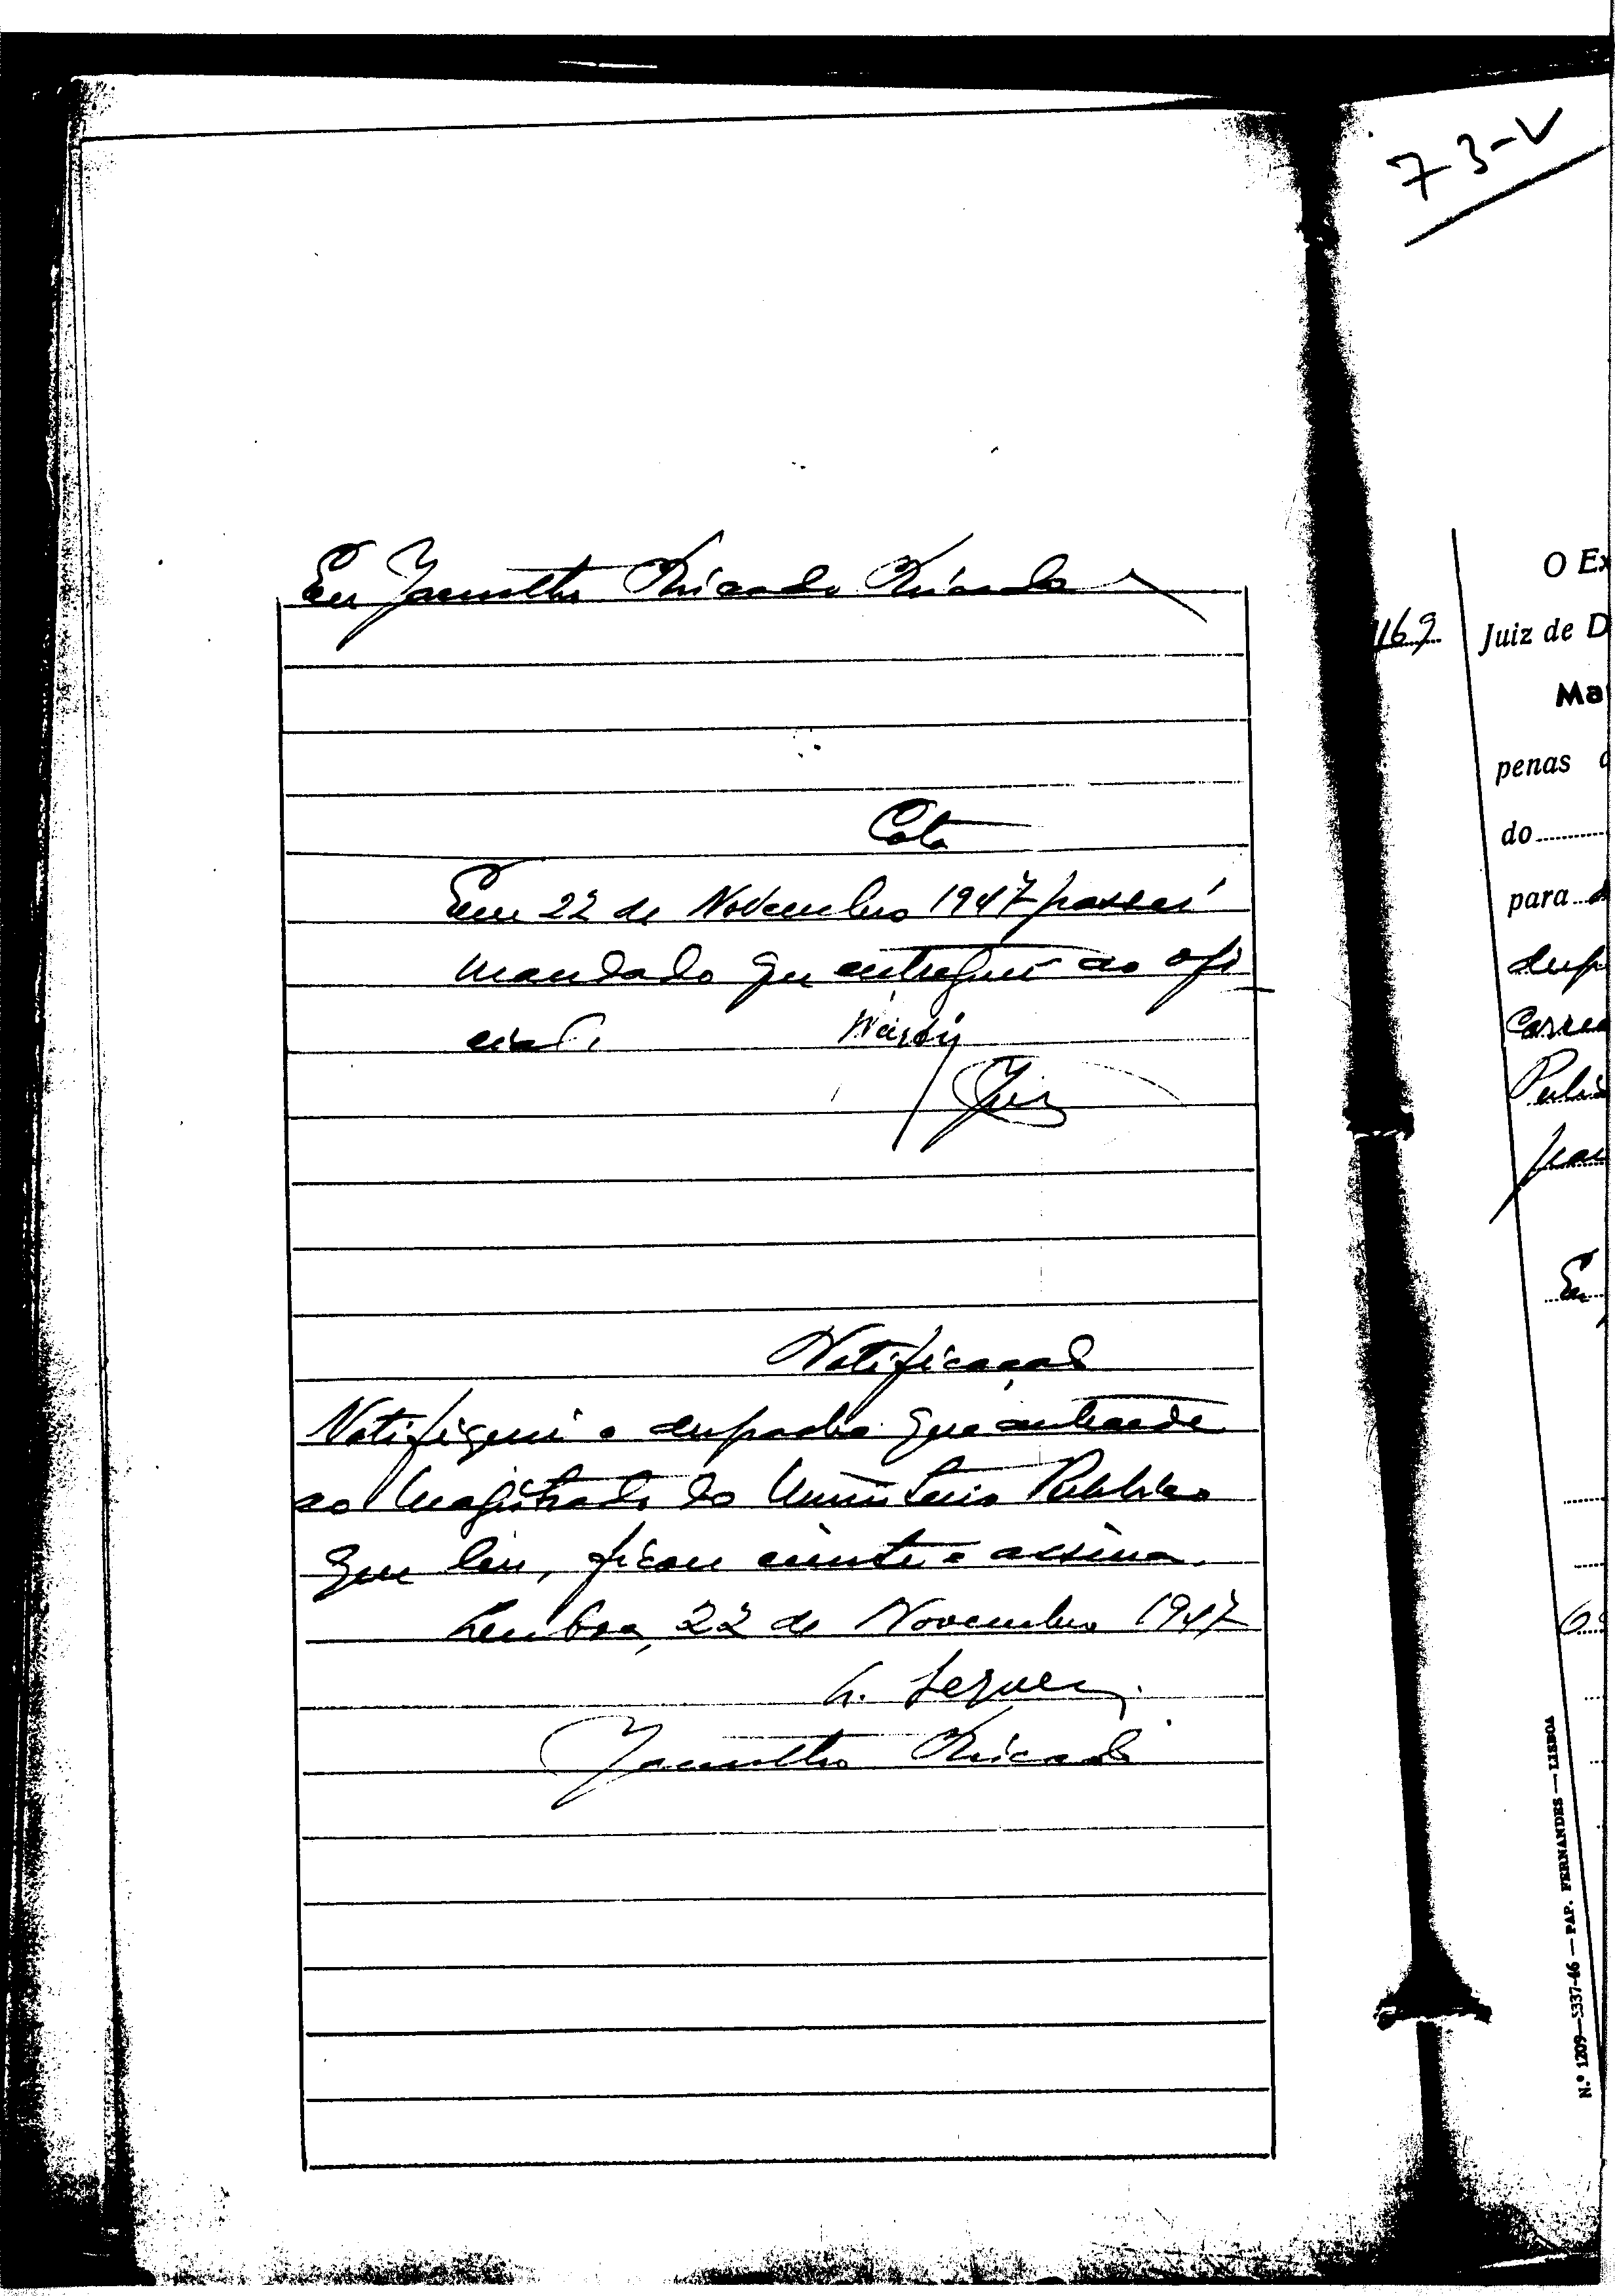 73-V
Eu Jacintho Ricardo
Cota
Em 22 de Novembro 1947 passei
mandado que entreguei ao ofi
cial.
Notificação
Notifiquei o despacho que antecede
ao Magistrado do Ministerio Publico
que leu, ficou ciente e assina.
Lisboa, 22 de Novembro 1947
Jacintho Ricardo
O Ex
169
Juiz de D
Ma
penas
do
para
desp
Correc
Públi
Eu
N.º 1209—5337-46 — PAP. FERNANDES — LISBOA